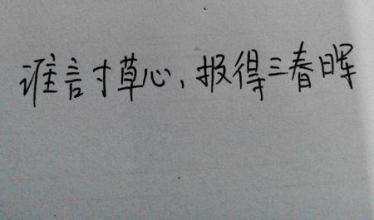 谁言寸草心,报得三春晖